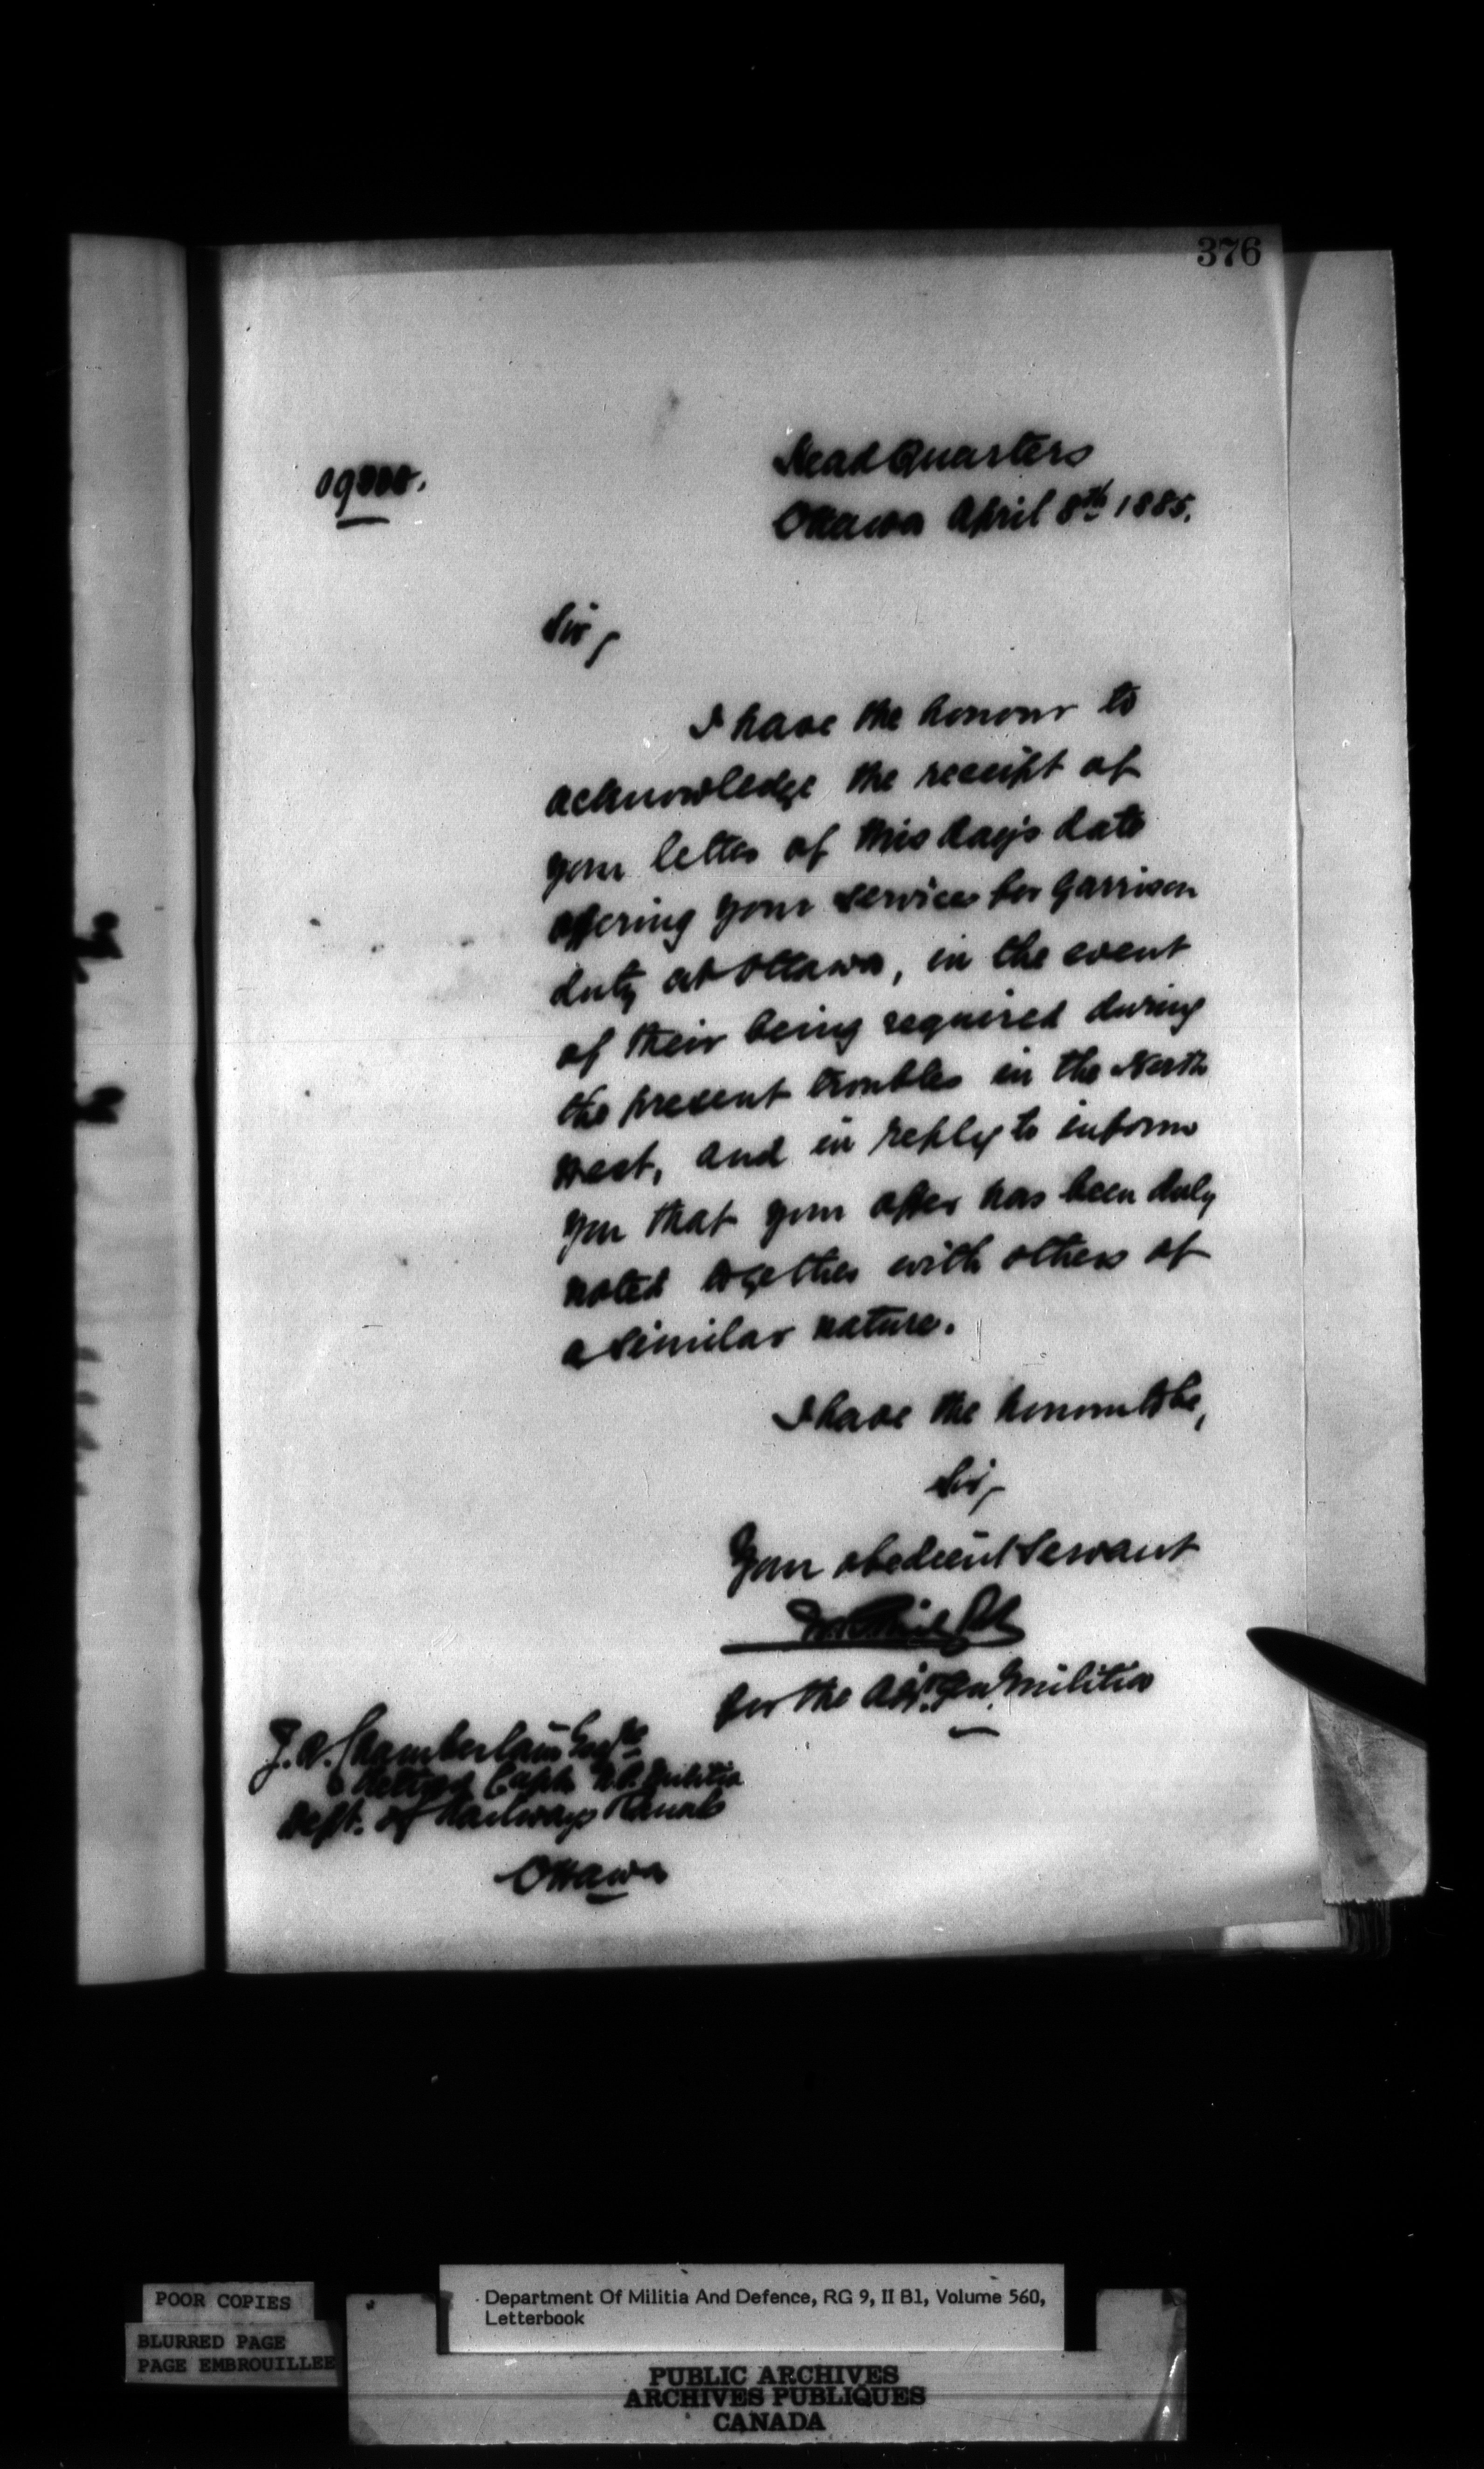 376
Head Quarters
Ottawa April 8th 1885.
Sir,
I have the honour to
acknowledge the receipt of
your letter of this day's date
offering your services for Garrison
duty at Ottawa, in the event
of their being required during
the present troubles in the North
West, and in reply to inform
you that your offer has been duly
noted together with others of
a similar nature.
I have the honour to be,
Sir,
Your obedient Servant
for the Adjt. Genl. Militia
J. A. Chamberlain Esqre
Retired Capt. Militia
Dept. of Railways & Canals
Ottawa
POOR COPIES
BLURRED PAGE
PAGE EMBROUILLEE
Department Of Militia And Defence, RG 9, II B1, Volume 560,
Letterbook
PUBLIC ARCHIVES
ARCHIVES PUBLIQUES
CANADA